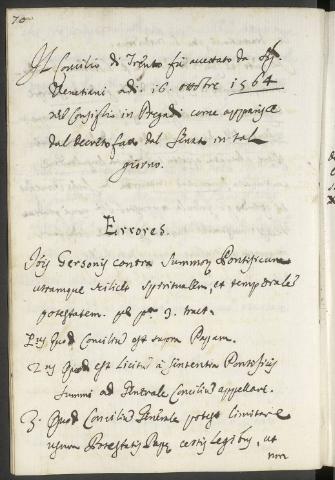 70
Il Concilio di Trento fu accettato da Sig.
Venetiani adi. 16. ottobre 1564
nel Consiglio in Pregadi come apparisce
dal decreto fatto dal Senato in tal
giorno.
Errores.
Jois Gersonis contra Summoȝ Pontificum
utramque scilicet spiritualem, et temporale
potestatem. 3. tract.
Prus Quod Concilium est supra Papam.
2us Quod est licitum à sententia Pontificis
summi ad Generale Concilium appellare.
3. Quod Concilium Generale potest limitare
usum Potestatis Papæ certis legibus, ut
non